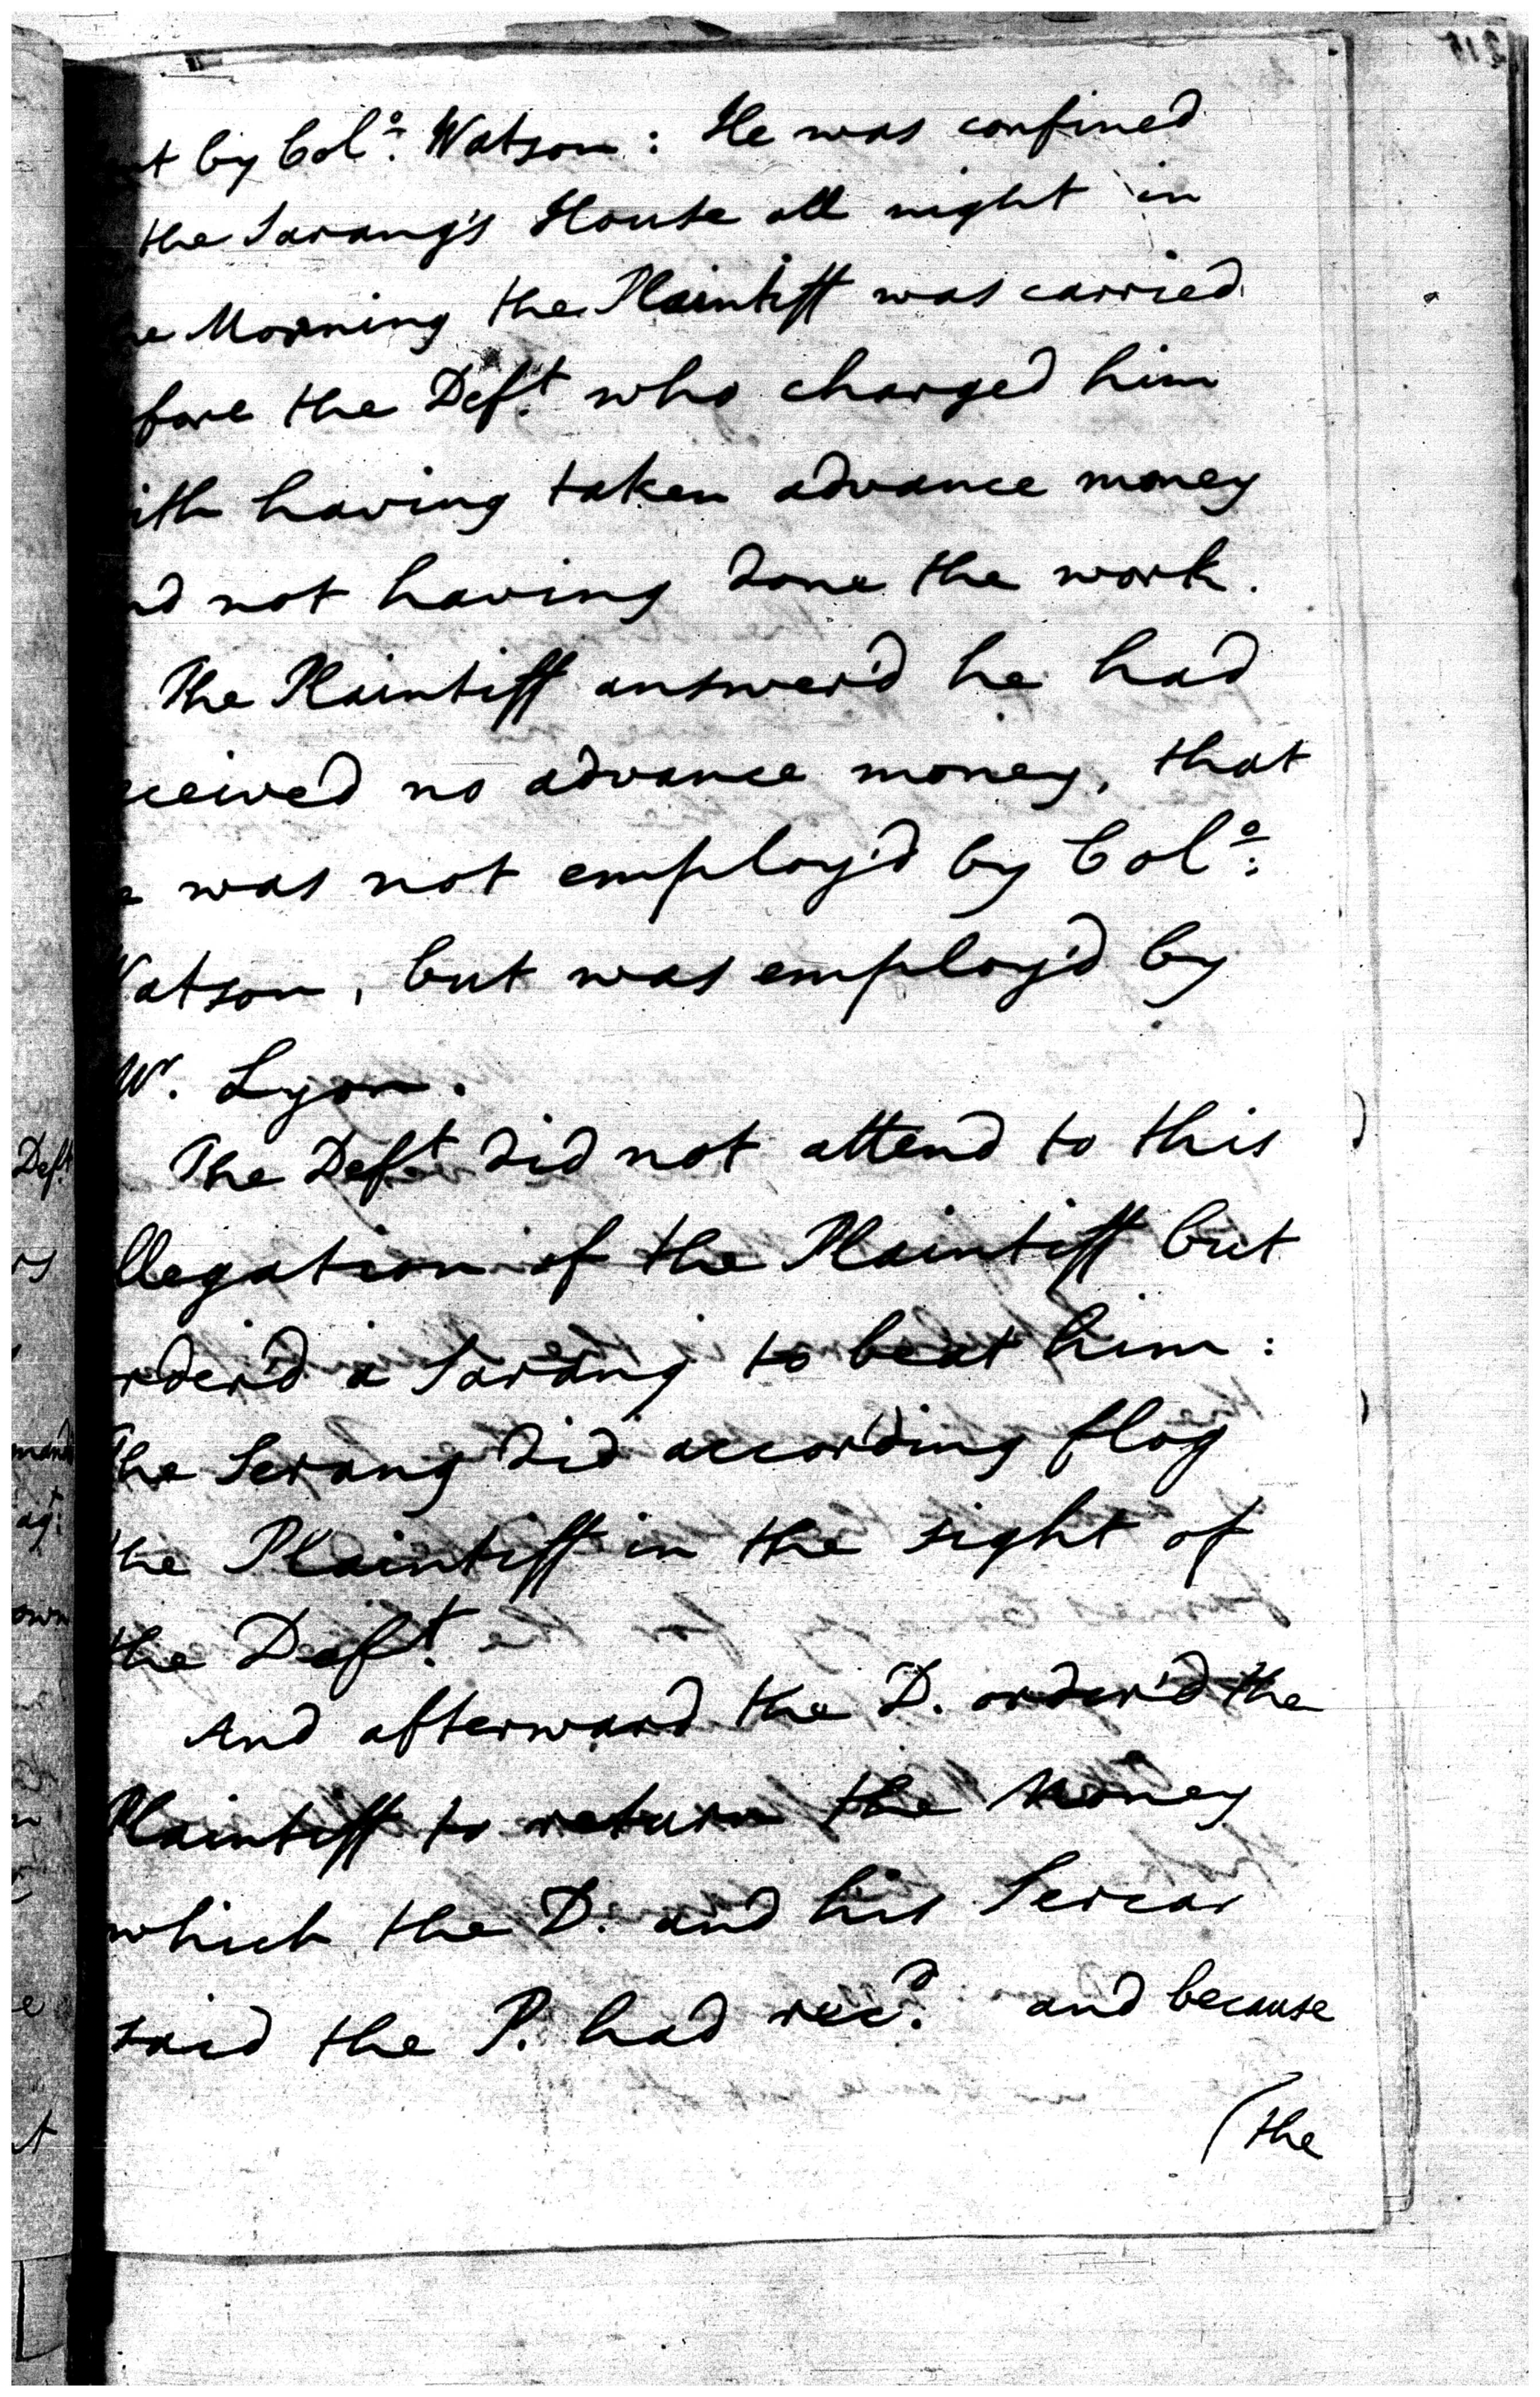 nt by Colo: Watson: He was confined
the Sarang's House all night in
e Morning the Plaintiff was carried
fore the Deft. who charged him
ith having taken advance money
nd not having done the work.
The Plaintiff answer'd he had
ceived no advance money, that
e was not employ'd by Colo:
Watson, but was employ'd by
Mr. Lyon.
The Deft. did not attend to this
llegation of the Plaintiff but
rder'd a Sarang to beat him:
The Serang did according flog
the Plaintiff in the sight of
the Deft.
And afterward the D. order'd the
Plaintiff to return the Money
which the D. and his Sercar
said the P. had recd. and because
(the